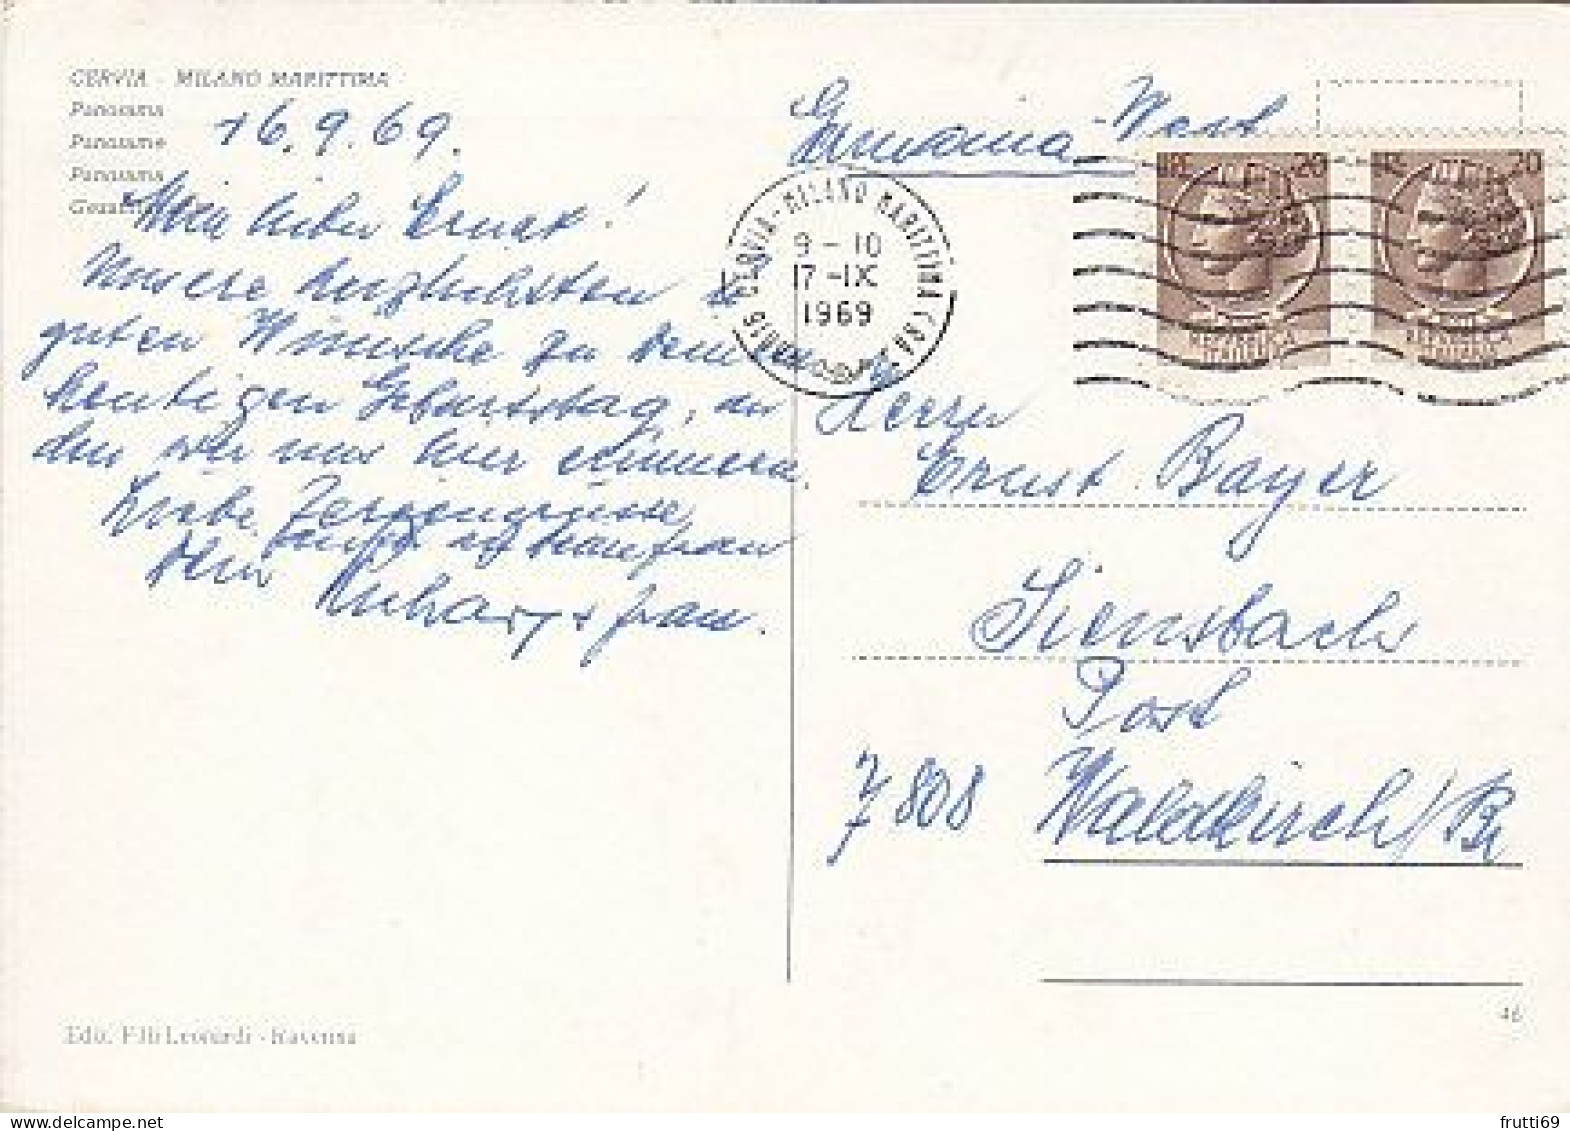 CERVIA - MILANO MARITTIMA
Panorama
Panorame
Panorama
16.9.69.
Mein lieber Ernst!
Unsere herzlichsten u.
guten Wünsche zu Deinem
heutigen Geburtstag, an
den wir uns hier erinnern.
Liebe Feriengrüsse
auch an Deine frau
Dein + frau.
Edit. F.lli Leonardi - Ravenna
Germania-West
CERVIA-MILANO MARITTIMA (RA)
9-10
17-IX
1969
LIRE 20
REPUBBLICA
ITALIANA
LIRE 20
REPUBBLICA
ITALIANA
Herrn
Ernst Bayer
Siensbach
Post
7808 Waldkirch/Br
46
frutti69